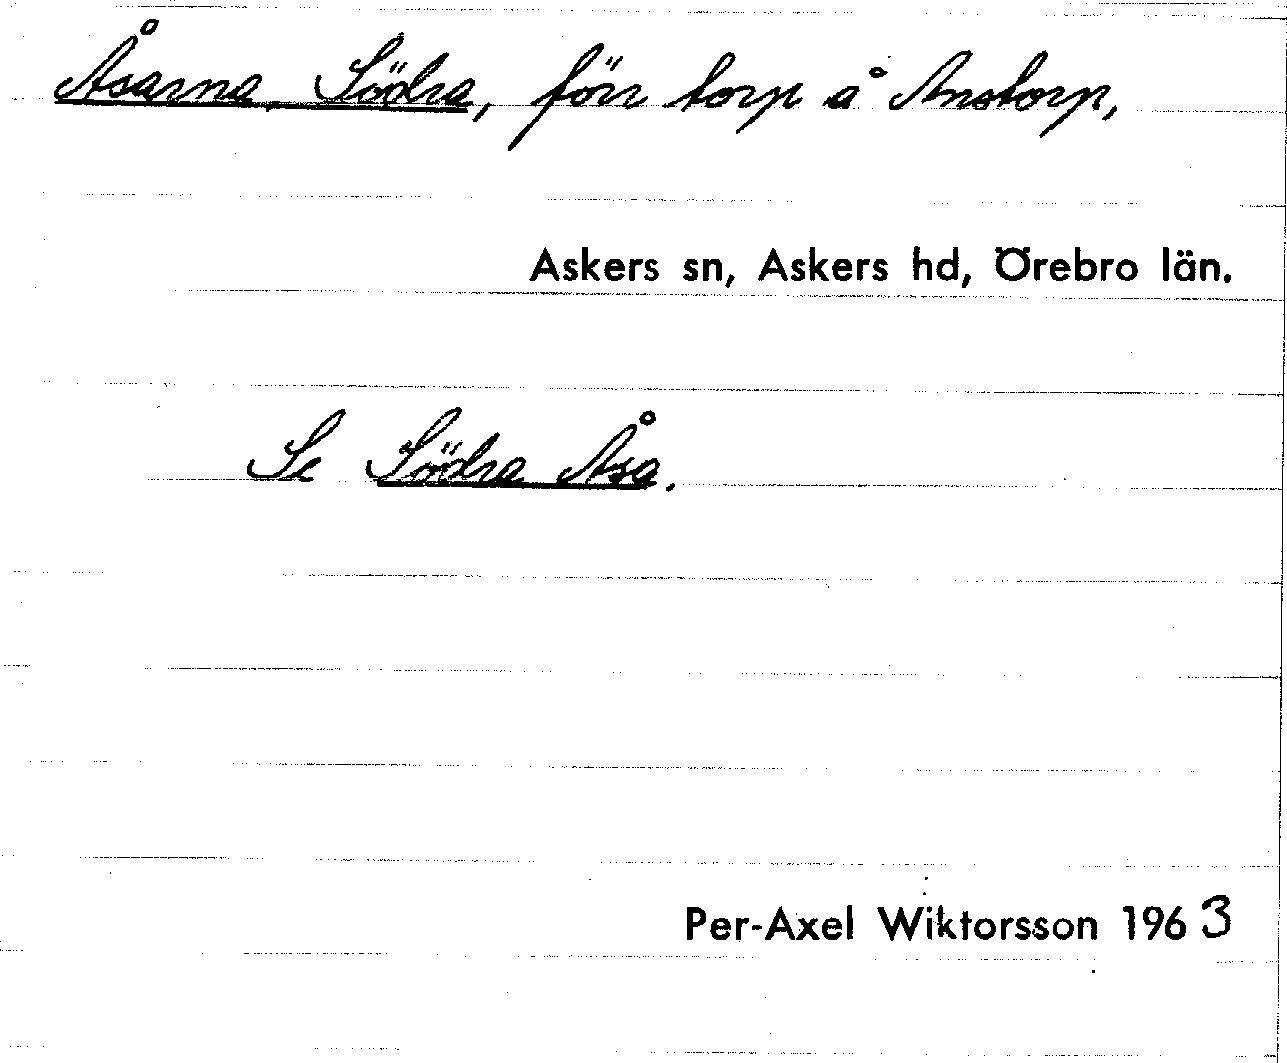 Åsarna, Södra, förr torp å Anstorp,
Askers sn, Askers hd, Örebro län.
Se Södra Åsa.
Per-Axel Wiktorsson 1963